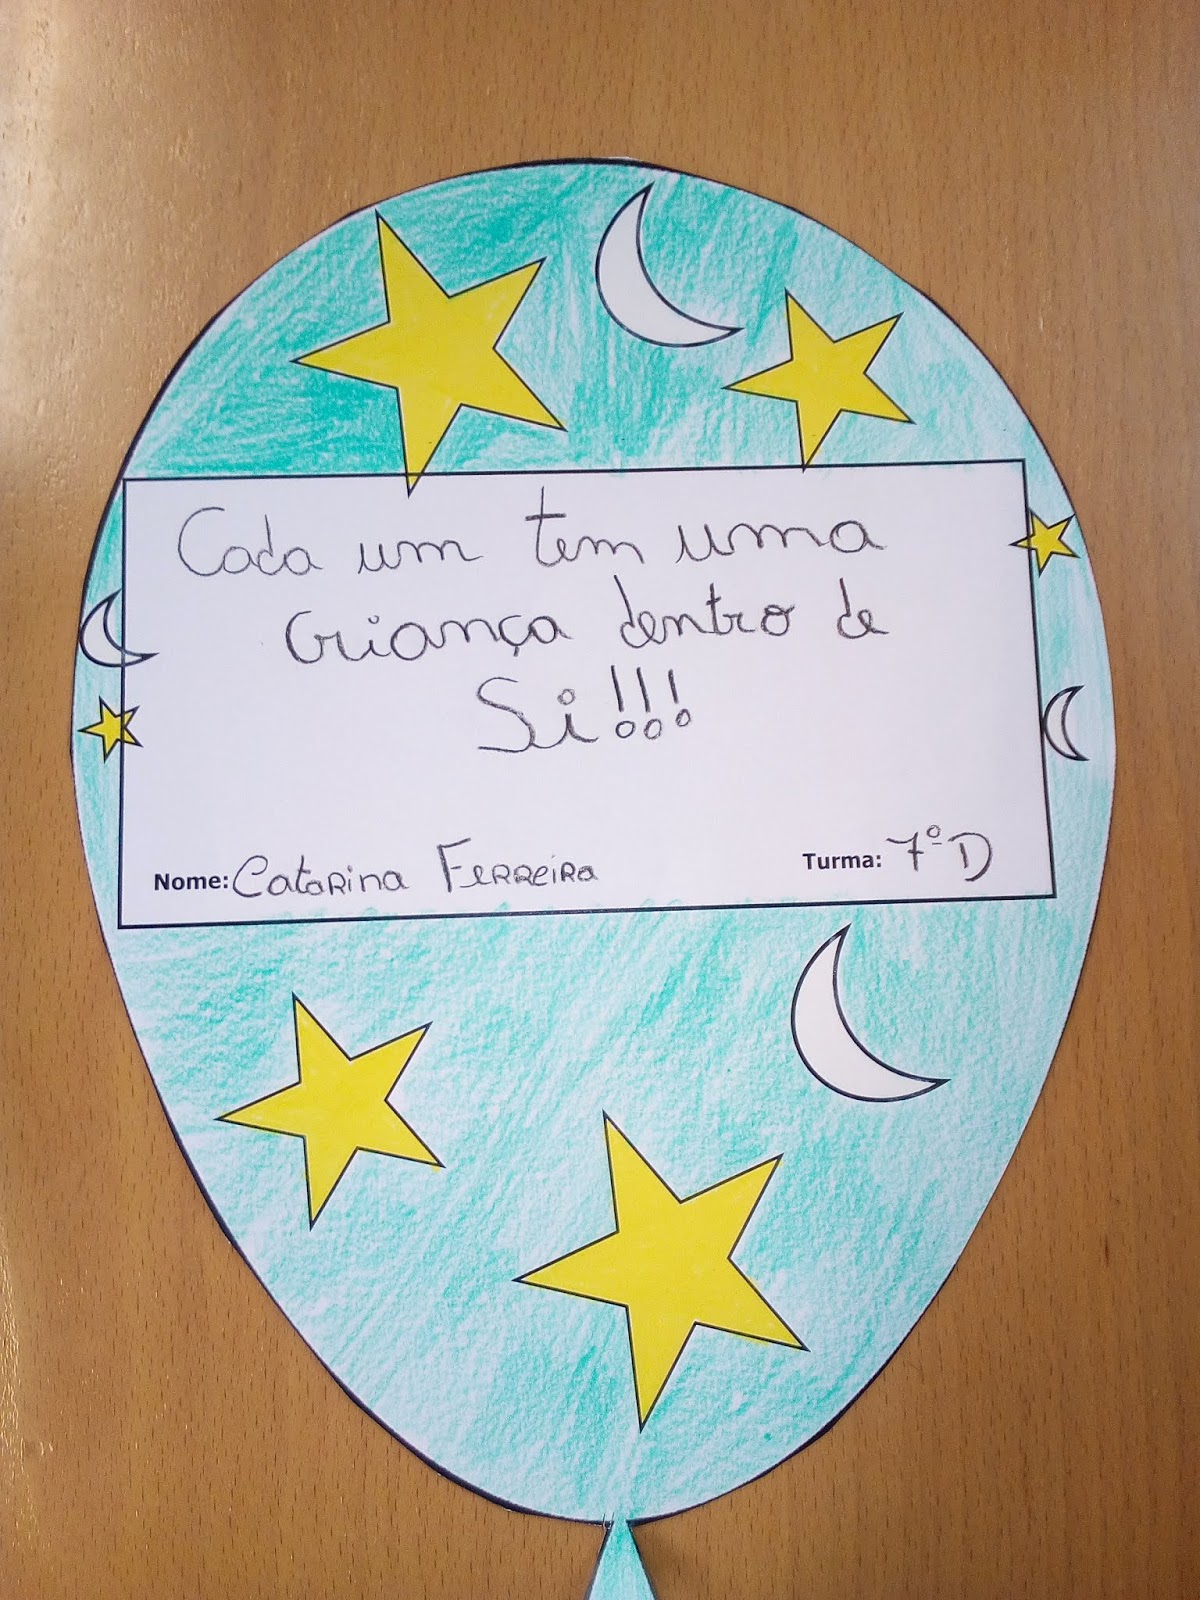 Cada um tem uma
criança dentro de
Si!!!
Nome: Catarina Ferreira Turma: 7º D